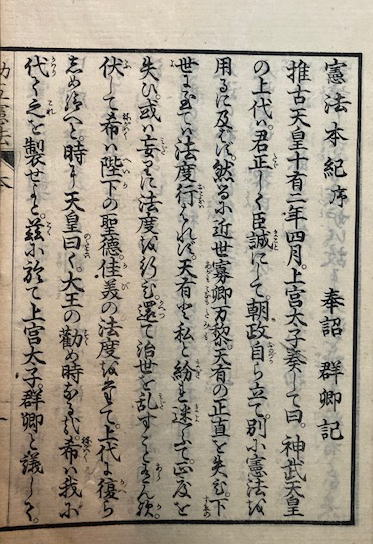 憲法本紀序　奉詔　群卿記
推古天皇十有二年四月。上宮太子奏して曰。神武天皇
の上代ハ。君正しく臣誠にして。朝政自ら立て。別に憲法を
用るに及ばず。然るに近世寡卿万黎。天有の正直を失ひ。下
世に至てハ法度行ハれバ。天有と私と紛ひ迷ふて。正度を
失ひ。或ハ妄りに法度を行ひ。還て治世を乱すことあらん欤
伏して希ハ陛下の聖徳。佳美の法度を立て。上代に復ら
しめ給へと。時に天皇曰く。大王の勧め時なる哉。希ハ我に
代て之を製せよと。茲に於て上宮太子。群卿と議して。